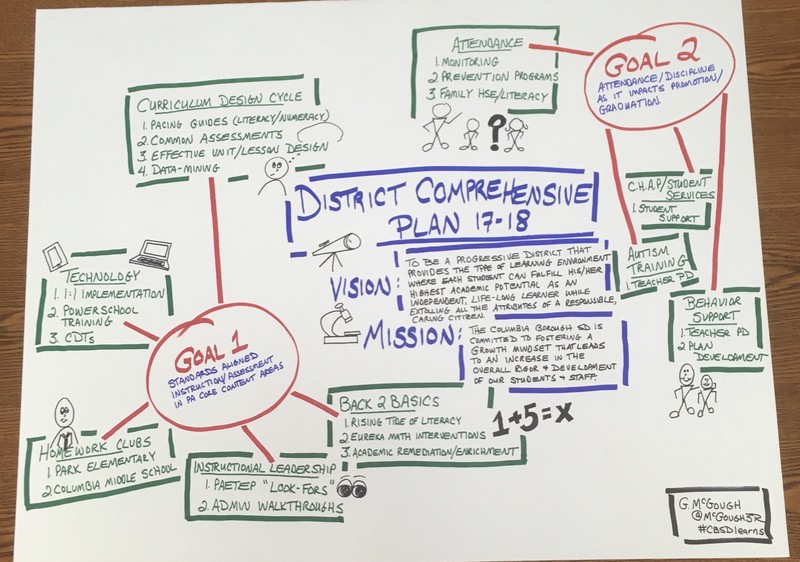 ATTENDANCE
1. MONITORING
2. PREVENTION PROGRAMS
3. FAMILY HSE/LITERACY
GOAL 2
ATTENDANCE/DISCIPLINE
AS IT IMPACTS PROMOTION/
GRADUATION
CURRICULUM DESIGN CYCLE
1. PACING GUIDES (LITERACY/NUMERACY)
2. COMMON ASSESSMENTS
3. EFFECTIVE UNIT/LESSON DESIGN
4. DATA-MINING
?
DISTRICT COMPREHENSIVE
PLAN 17-18
C.H.A.P/STUDENT
SERVICES
1. STUDENT
SUPPORT
AUTISM
TRAINING
1. TEACHER PD
VISION:
TO BE A PROGRESSIVE DISTRICT THAT
PROVIDES THE TYPE OF LEARNING ENVIRONMENT
WHERE EACH STUDENT CAN FULFILL HIS/HER
HIGHEST ACADEMIC POTENTIAL AS AN
INDEPENDENT, LIFE-LONG LEARNER WHILE
EXTOLLING ALL THE ATTRIBUTES OF A RESPONSIBLE,
CARING CITIZEN.
TECHNOLOGY
1. 1:1 IMPLEMENTATION
2. POWERSCHOOL
TRAINING
3. CDTS
BEHAVIOR
SUPPORT
1. TEACHER PD
2. PLAN
DEVELOPMENT
MISSION:
THE COLUMBIA BOROUGH SD IS
COMMITTED TO FOSTERING A
GROWTH MINDSET THAT LEADS
TO AN INCREASE IN THE
OVERALL RIGOR + DEVELOPMENT
OF OUR STUDENTS + STAFF.
GOAL 1
STANDARDS ALIGNED
INSTRUCTION/ASSESSMENT
IN PA CORE CONTENT AREAS
BACK 2 BASICS
1. RISING TIDE OF LITERACY
2. EUREKA MATH INTERVENTIONS
3. ACADEMIC REMEDIATION/ENRICHMENT
1+5=X
HOMEWORK CLUBS
1. PARK ELEMENTARY
2. COLUMBIA MIDDLE SCHOOL
INSTRUCTIONAL LEADERSHIP
1. PAETEP "LOOK-FORS"
2. ADMIN WALKTHROUGHS
G. McGOUGH
@McGOUGH3R
#CBSDlearns